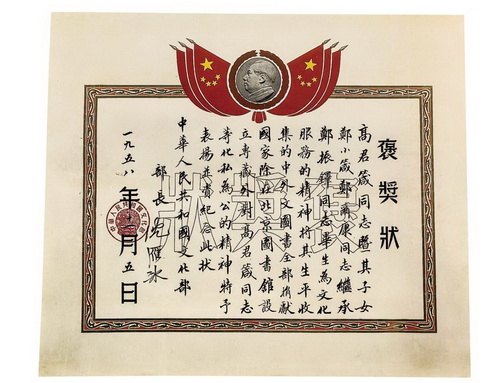 褒獎狀
高君箴同志暨其子女
鄭小箴鄭爾康同志繼承
鄭振鐸同志畢生為文化
服務的精神將其生平收
集的中外文圖書全部捐獻
國家除在北京圖書館設
立專藏外對高君箴同志
等化私為公的精神特予
表揚並資紀念此狀
中華人民共和國文化部
部長 沈雁冰
一九五八年十一月五日